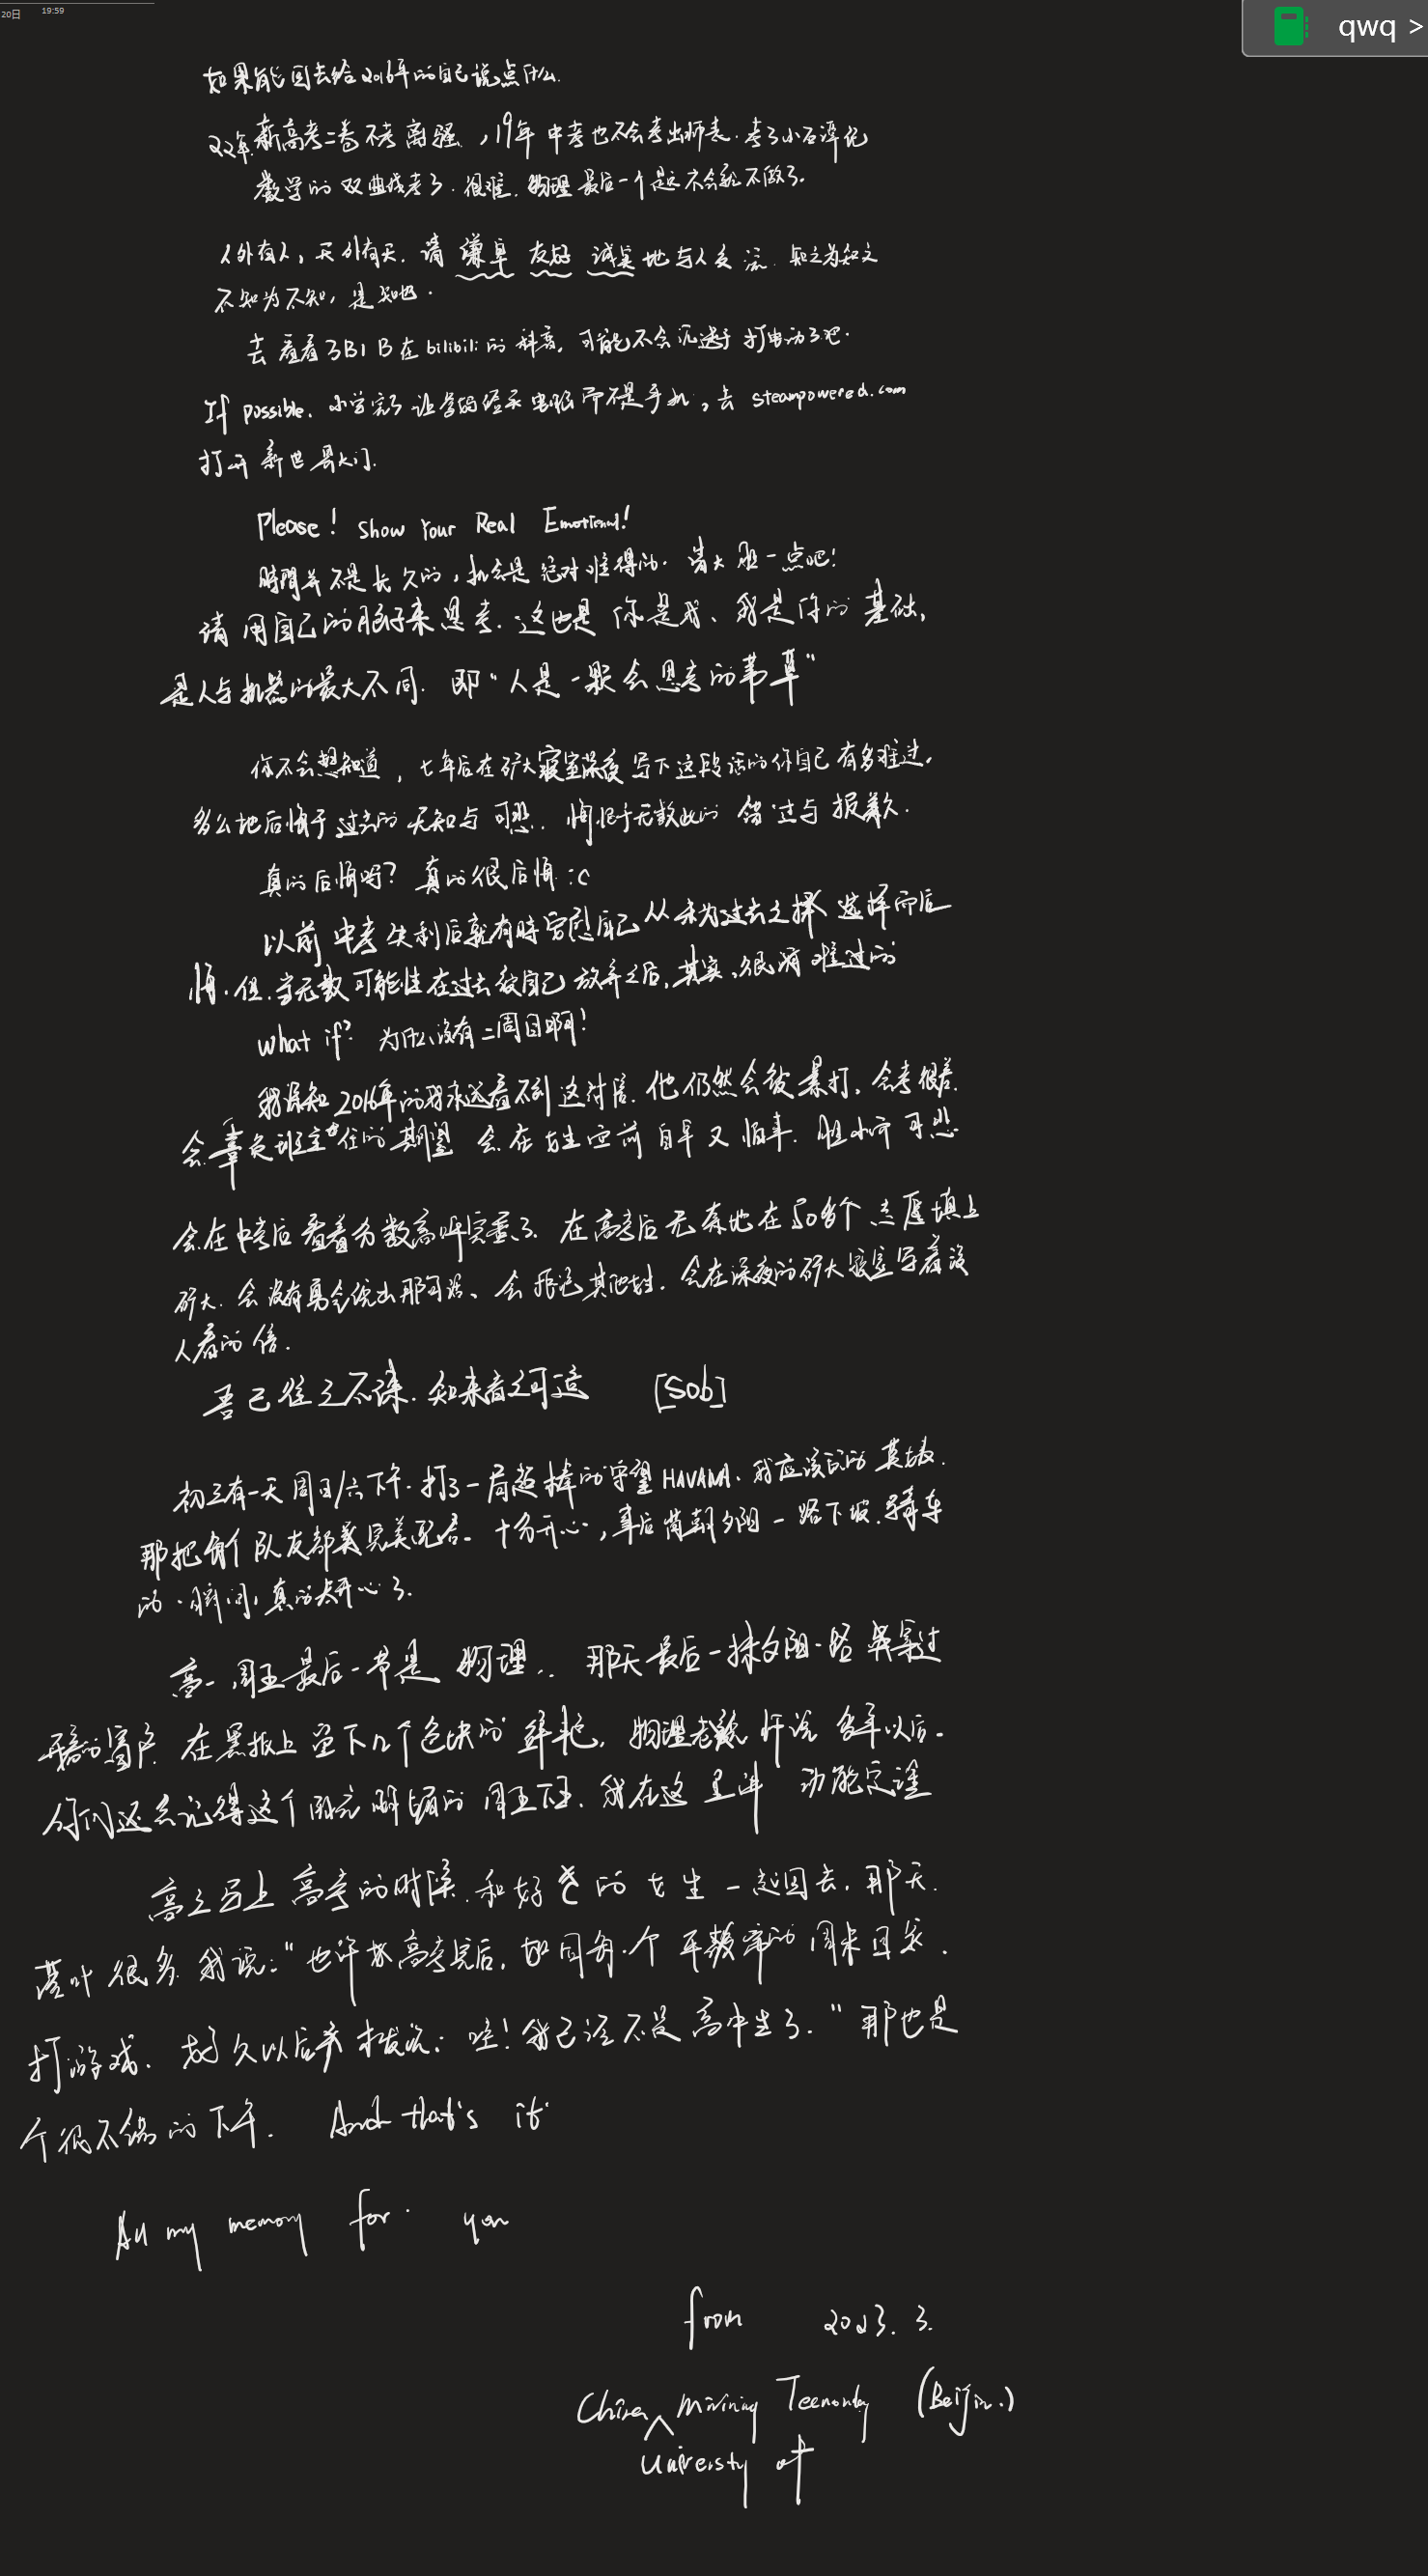 20日 19:59
qwq >
如果能回去给2016年的自己说点什么.
22年.新高考二卷不考离骚,19年中考也不会考出师表.考了小石潭记
数学的双曲线考了.很难.物理最后一个是这不会就不做了.
人外有人,天外有天.请谦卑 友好 诚实地与人交流.知之为知之
不知为不知,是知也.
去看看3B1B在bilibili的科普,可能不会沉迷于打电动了吧.
If possible.小学完了让爸妈经买电脑而不是手机,去steampowered.com
打开新世界大门.
Please! Show Your Real Emotional!
時間并不是长久的,机会是绝对难得的.请大胆一点吧!
请用自己的脑子来思考.这也是你是我、我是你的基础,
是人与机器的最大不同.即"人是一颗会思考的苇草"
你不会想知道,七年后在矿大寝室深夜写下这段话的你自己有多难过.
多么地后悔于过去的无知与可悲.悔恨于无数此的错过与报歉.
真的后悔吗?真的很后悔:c
以前中考失利后就有時安慰自己从未为过去之择选择而后
悔.但.当无数可能性在过去被自己放弃之后,其实,很难过的
What if? 为什么没有二周目啊!
我深知2016年的我永远看不到这封信.他仍然会被暴打,会考很差.
会辜负班主任的期望 会在女生面前自卑又怕事.胆小而可悲
会在中考后看着分数高呼完蛋了.在高考后无奈地在50多个志愿填上
矿大.会没有勇气说出那句话、会拒绝其他女生.会在深夜的矿大寝室写着没
人看的信.
吾已往之不谏.知来者之可追 [Sob]
初三有一天周日/六下午.打了一局超棒的守望HAVANA.我应该玩的莫伊拉.
那把每个队友都是完美配合.十分开心,事后背朝夕阳一路下坡.骑车
的一瞬间,真的太开心了.
高一周五最后一节是物理..那天最后一抹夕阳一路穿过
开着的窗户.在黑板上留下几个色块的鲜艳.物理老魏 听说 多年以后.
你们还会记得这个阳光明媚的周五下午.我在这里讲 动能定理
高三马上高考的时候.和好き的女生一起回去.那天.
落叶很多.我说:"也许在高考完后,如同每一个平频常的周末回家.
打游戏.好久以后才发觉:哇!我已经不是高中生了."那也是
个很不错的下午. And that's it
All my memory for you
from 2023.3.
China Mining Teenonloy (Beijin.)
University of